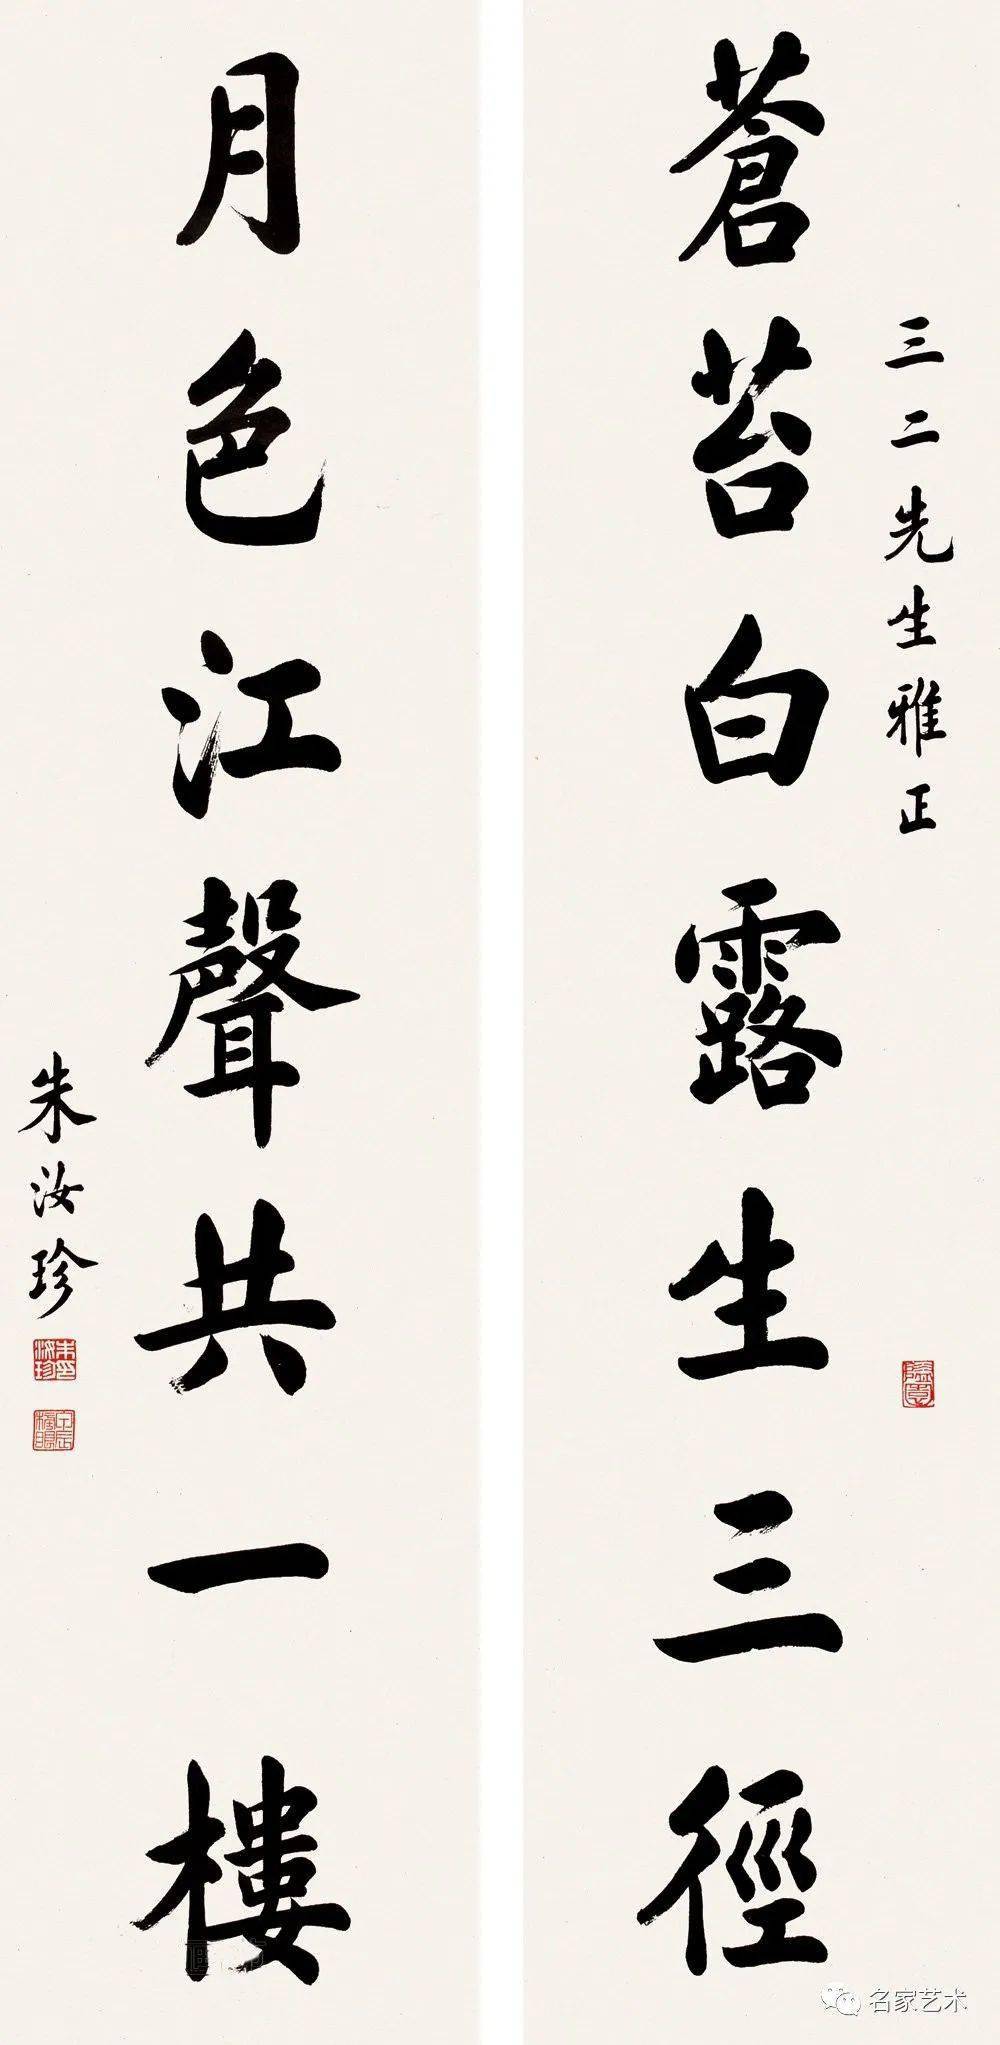 三二先生雅正
蒼苔白露生三徑
月色江聲共一樓
朱汝珍
名家艺术